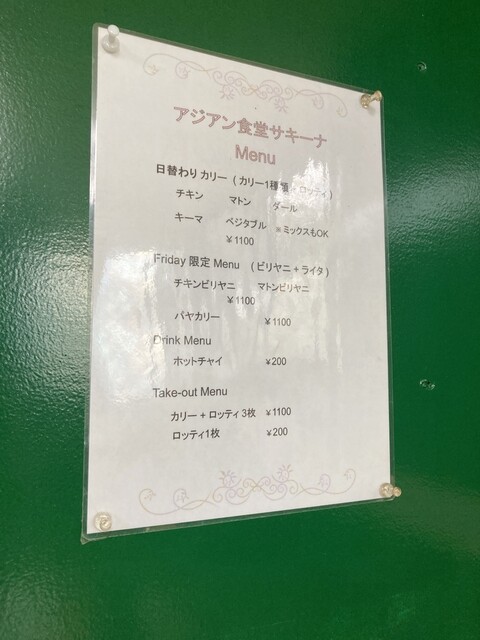 アジアン食堂サキーナ
Menu
日替わり カリー ( カリー1種類 + ロッティ )
チキン マトン ダール
キーマ ベジタブル ※ミックスもOK
￥1100
Friday 限定 Menu ( ビリヤニ + ライタ )
チキンビリヤニ マトンビリヤニ
￥1100
パヤカリー ￥1100
Drink Menu
ホットチャイ ￥200
Take-out Menu
カリー + ロッティ 3枚 ￥1100
ロッティ1枚 ￥200